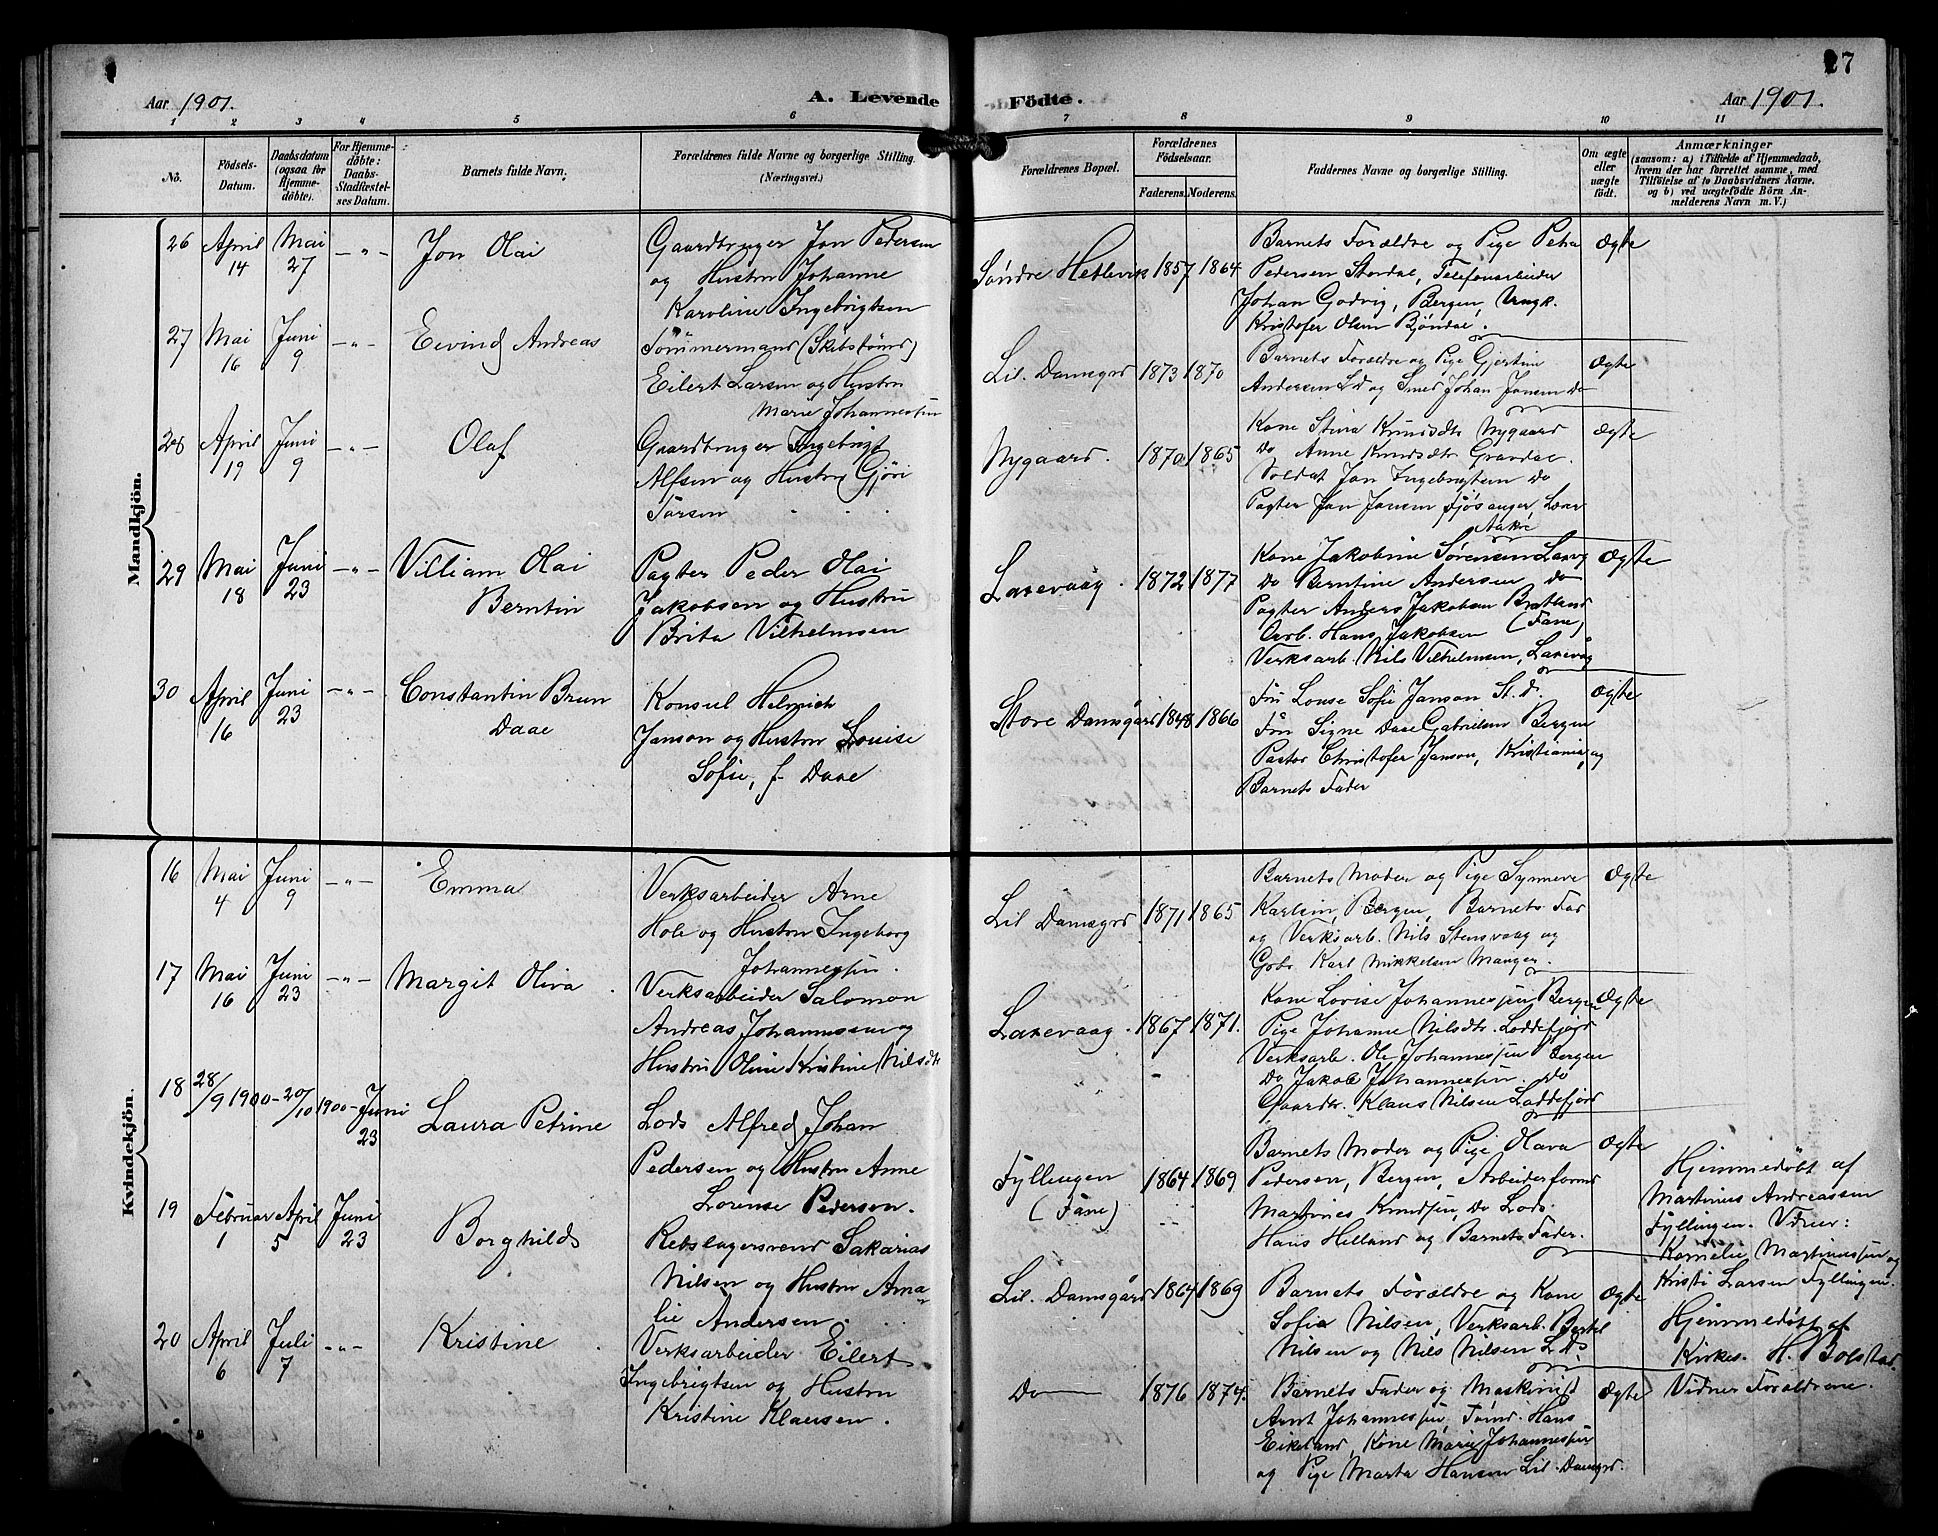 27
Aar 1901.
A. Levende Födte.
Aar 1901.
1 2 3 4 5 6 7 8 9 10 11
No.
Födsels-Datum.
Daabsdatum (ogsaa for Hjemme-döbte).
For Hjemme-döbte: Daabs-Stadfæstel-ses Datum.
Barnets fulde Navn.
Forældrenes fulde Navne og borgerlige Stilling.
(Næringsvei.)
Forældrenes Bopæl.
Forældrenes Födselsaar.
Faderens. Moderens.
Faddernes Navne og borgerlige Stilling.
Om ægte eller uægte födt.
Anmærkninger
(saasom: a) i Tilfælde af Hjemmedaab,
hvem der har forrettet samme, med
Tilföielse af to Daabsvidners Navne,
og b) ved uægtefödte Börn An-
melderens Navn m. V.)
Mandkjön.
26 April 14 Mai 27 -"- Jon Olai
Gaardbruger Jon Pedersen
og Hustru Johanne
Karoline Ingebrigtsen
Söndre Hetlevik 1857 1864
Barnets Forældre og Pige Petra
Pedersen Stordal, Telefonarbeider
Johan Godvig, Bergen, Ungk.
Kristofer Olsen Bjöndal.
Ægte
27 Mai 16 Juni 9 -"- Eivind Andreas
Tömmermand (Skibstömd)
Eilert Larsen og Hustru
Marie Johannessen
Lil. Damsgrd 1873 1870
Barnets Forældre og Pige Gjertine
Andersen Ld og Smed Johan Jonsen Do
Ægte
28 April 19 Juni 9 -"- Olaf
Gaardbruger Ingebrigt
Alfsen og Hustru Gjöri
Larsen
Nygaard. 1870 1865
Kone Stina Knudsdtr Nygaard
Do Anne Knudsdtr Gravdal.
Soldat Jon Ingebrigtsen Do
Pagter Jon Jonsen Fjösanger, Lærer
Ægte
29 Mai 18 Juni 23 -"- Villiam Olai
Berntin
Pagter Peder Olai
Jakobsen og Hustru
Brita Vilhelmsen
Laxevaag. 1872 1877
Kone Jakobine Sörensen Laxvg
Do Berntine Andersen Do
Pagter Anders Jakobsen Bratland
Arb. Hans Jakobsen (Fane)
Verksarb. Nils Vilhelmsen, Laxevåg
Ægte
30 April 16 Juni 23 -"- Constantin Brun
Daae
Konsul Helmich
Janson og Hustru Louise
Sofie, f. Daae
Store Damsgård 1848 1866
Fru Louse Sofie Janson St. D.
Fru Signe Daae Gabrielsen Bergen
Pastor Christofer Janson, Kristiania, og
Barnets Fader
Ægte
Kvindekjön.
16 Mai 4 Juni 9 -"- Emma
Verksarbeider Arne
Hole og Hustru Ingeborg
Johannessen.
Lil Damsgrd 1871 1865
Barnets Moder og Pige Synneve
Karlsen, Bergen, Barnets Far
og Verksarb. Nils Stensvaag og
Gbr. Karl Mikkelsen Manger.
Ægte
17 Mai 16 Juni 23 -"- Margit Oliva
Verksarbeider Salomon
Andreas Johannessen og
Hustru Oline Kristine Nilsdtr
Laxevaag. 1867 1871.
Kone Lovise Johannessen Bergen
Pige Johanne Nilsdtr. Loddefjord
Verksarb. Ole Johannessen Bergen
Do Jakob Johannessen. Do
Gaardbr. Klaus Nilsen Loddefjord
Ægte
18 28/9 1900 - 20/10 1900 - Juni 23 Laura Petrine
Lods Alfred Johan
Pedersen og Hustru Anne
Lorense Pederson.
Fyllingen (Fane) 1864 1869
Barnets Moder og Pige Olava
Pedersen, Bergen, Arbeiderformd
Martines Knudsen, Do Lods.
Hans Helland og Barnets Fader.
Ægte
Hjemmedöbt af
Martinus Andreassen
Fyllingen. Vidner:
Kornelie Martinussen og
Kristi Larsen Fyllingen.
19 Februar 1 April 5 Juni 23 Borghild
Rebslagersvend Sakarias
Nilsen og Hustru Ama-
lie Andersen.
Lil. Damsgård 1864 1869
Barnets Forældre og Kone
Sofia Nilsen, Verksarb. Bertel
Nilsen og Nils Nilsen L.D.
Ægte
Hjemmedöbt af
Kirkes. H. Bolstad.
Vidner Forældrene.
20 April 6 Juli 7 -"- Kristine
Verksarbeider Eilert
Ingebrigtsen og Hustru
Kristine Klausen.
Do 1876 1874.
Barnets Fader og Maskinist
Arnt Johannessen, Tömd. Hans
Eikeland, Kone Marie Johannessen
og Pige Marta Hansen Lil. Damsgrd.
Ægte